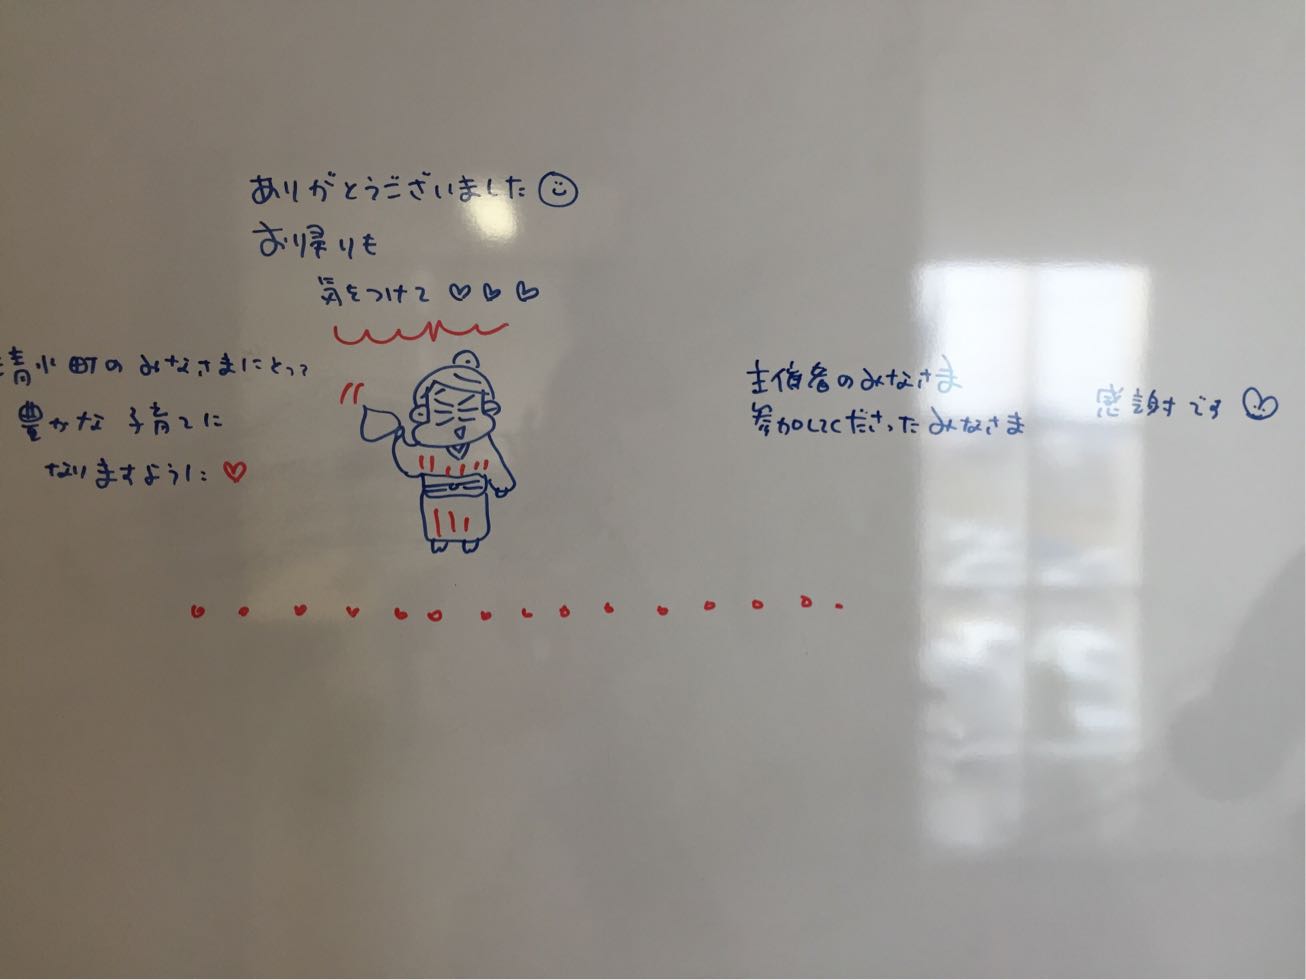 ありがとうございました
お帰りも
気をつけて
清水町のみなさまにとって
豊かな子育てに
なりますように
主催者のみなさま
参加してくださったみなさま
感謝です